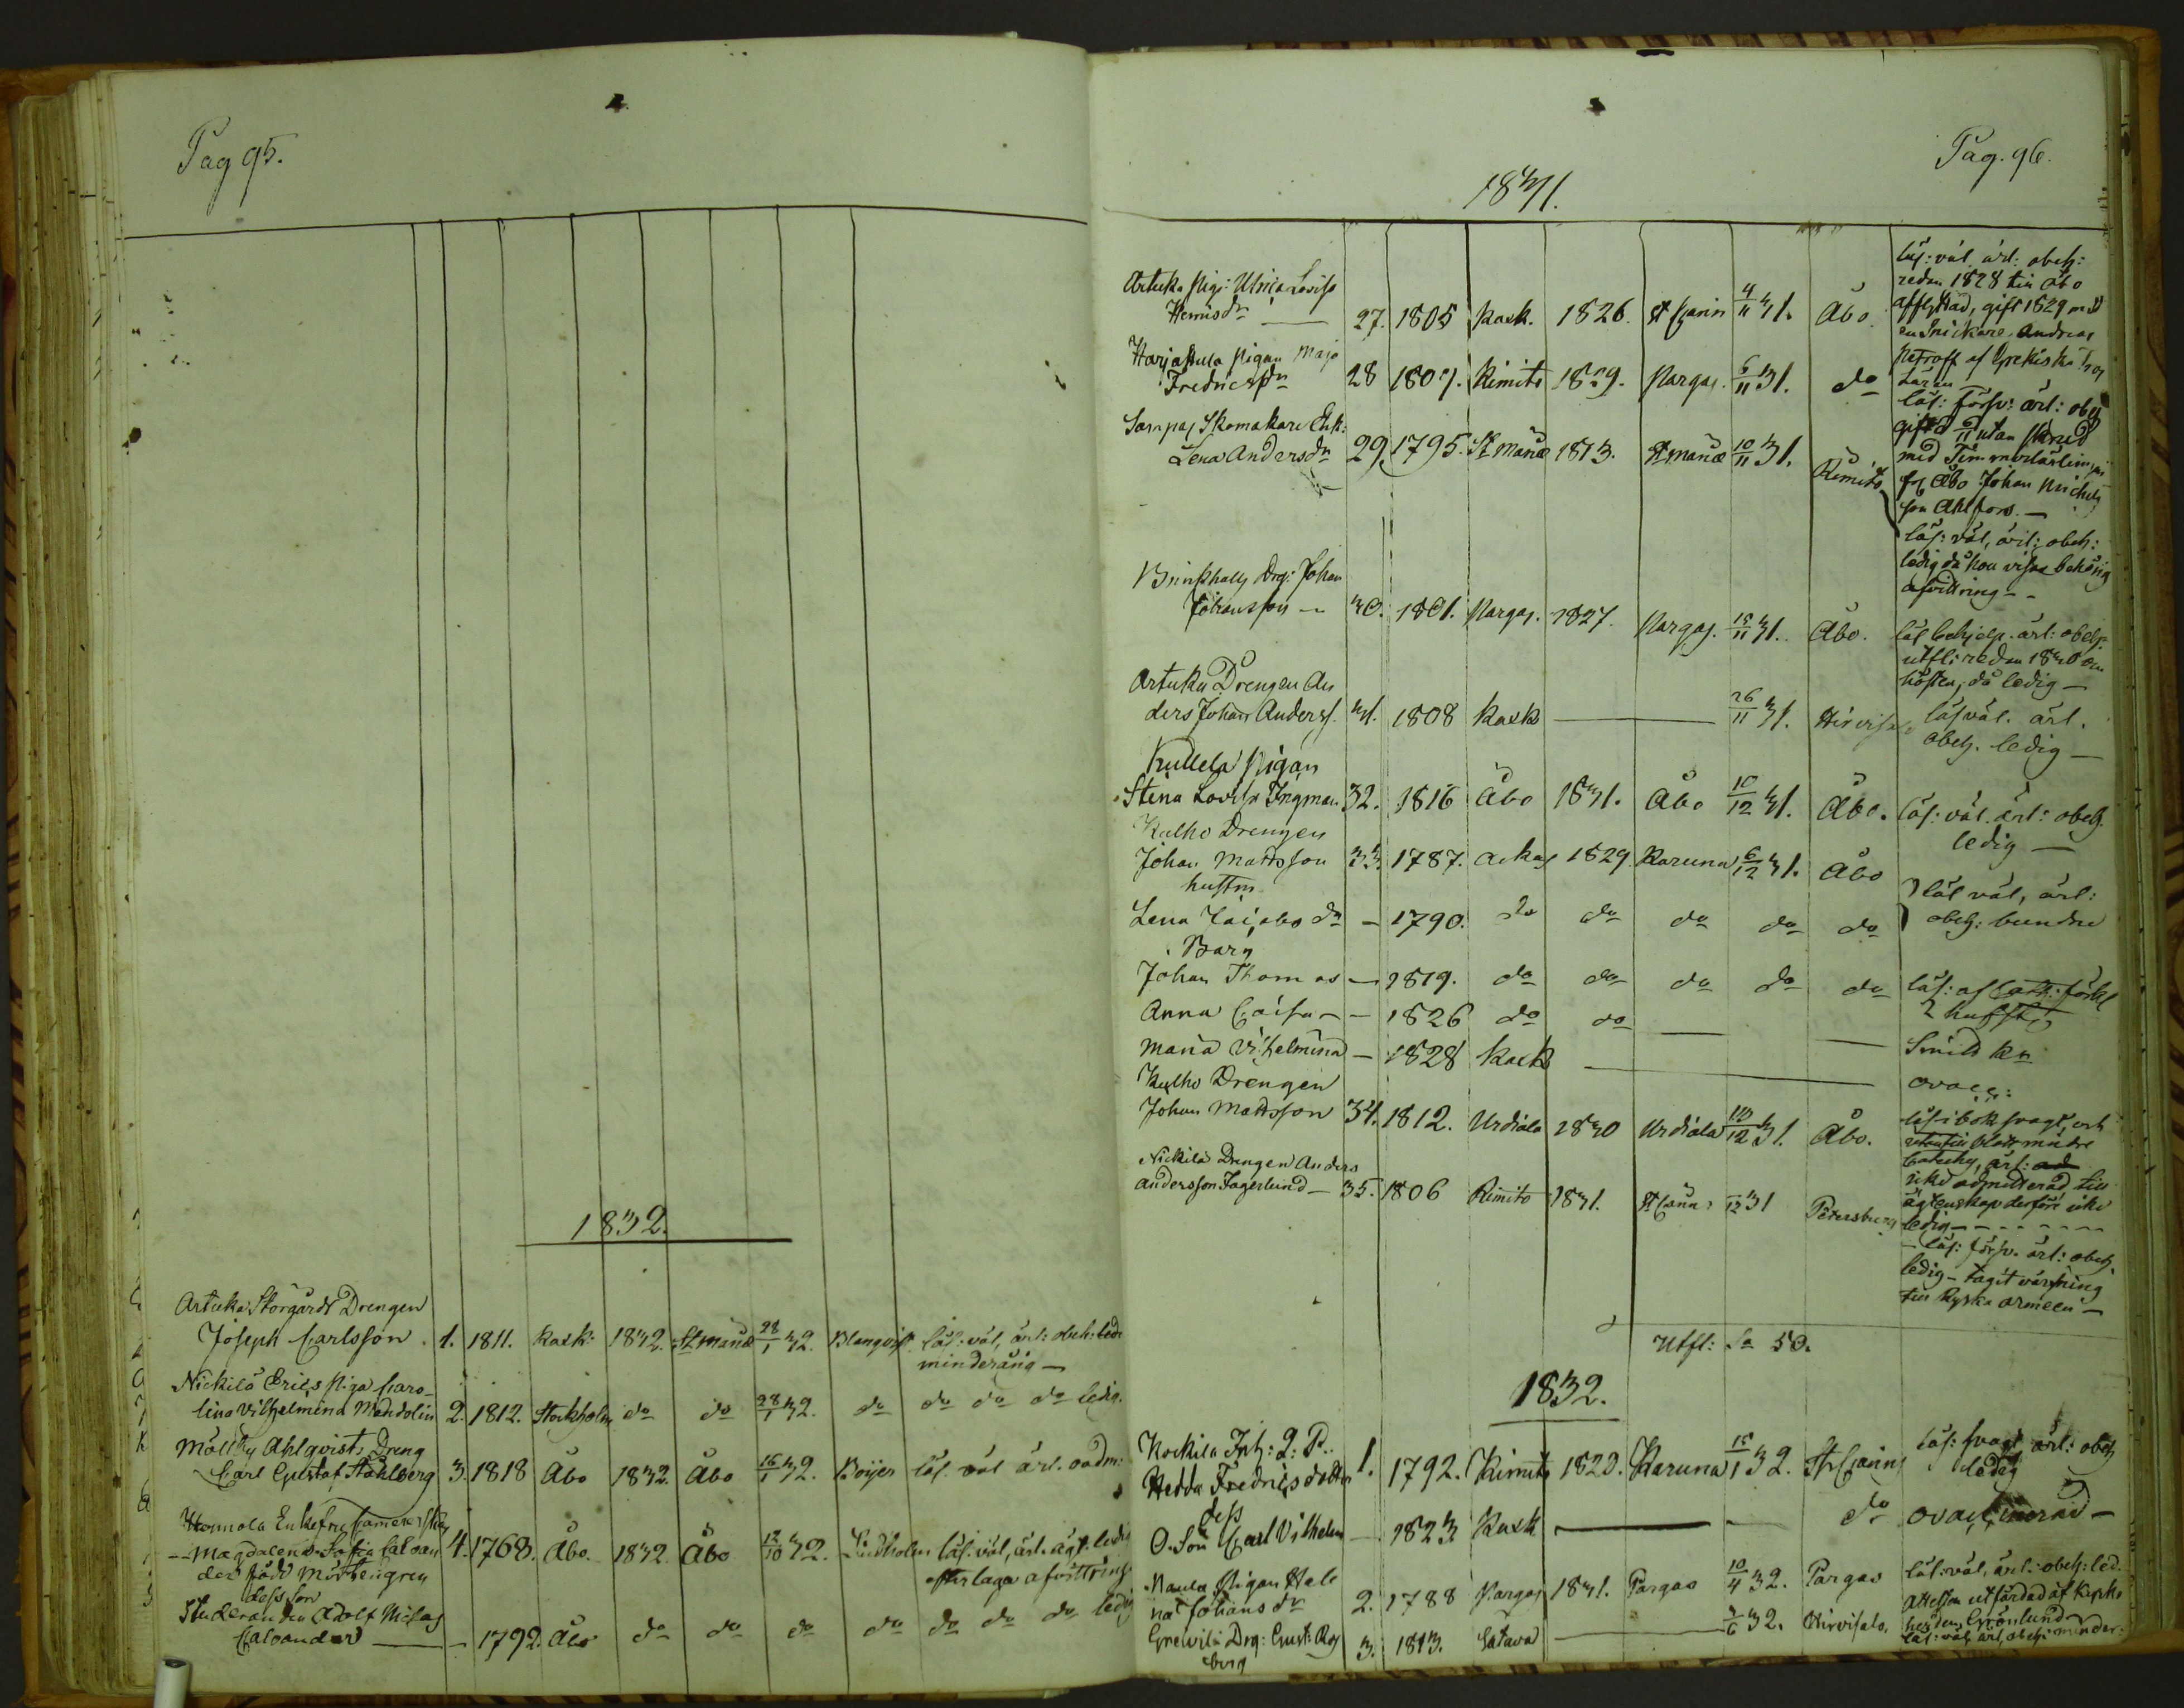 Pag 95.
1832.
Artuka Storgårds Drengen
Joseph Carlsson. 1. 1811. Kask: 1832. St. Mariæ 28/1 32. Blanqvist läs: väl, ärl: obeh: led:
minderårig —
Nickilä Erics Piga Caro-
lina Vilhelmina Mandolin 2. 1812. Stockholm do do 28/1 32. do do do do ledig.
Ahlqvists Dreng
Carl Gustaf Ståhlberg 3. 1818 Åbo 1832. Åbo 16/1 32. Boijer läs. väl ärl. oadm:
Enkefru
Magdalena Sofia Caloan 4. 1768. Åbo. 1832. Åbo 12/10 32. Lindholm läs: väl, ärl. ledig
der född
efter laga afvittring
dess son
Studeranden Adolf Niclas
Caloander — – 1792. Åbo do do do do do do do ledig
Pag. 96.
1831.
Artuka Pig: Ulrica Lovisa
Henricsdr — 27. 1805 Kask. 1826. St Carin 4/11 31. Åbo.
läs: väl ärl: obeh:
redan 1828 till Åbo
afflyttad, gift 1829 med
en Snickare Andreas
Petroff af Grekiska
läran
Harjattula Pigan Maja
Fredricsdr 28 1807. Kimito 1829. Pargas. 6/11 31. do
läs: försv: ärl: obeh
gift d 6/11 utan
med Timmerkarlen
frå Åbo Johan Michels
son Ahlfors. —
Sampas Skomakare Enk:
Lena Andersdr 29. 1795. St Mariæ 1813. St Mariæ 10/11 31. Kimito
läs: väl, ärl: obeh:
ledig då hon visar behörig
afvittring - -
Brinkhalls Drg: Johan
Johansson — 30. 1801. Pargas. 1827. Pargas. 15/11 31. Åbo.
läs behjelp. ärl: obeh.
utfl: redan 1830 om
hösten, då ledig —
Artuka Drengen An
ders Johan Anderss. 31. 1808 Kask — 26/11 31. Hirvisalo
läs väl. ärl.
obeh. ledig —
Kullela Pigan
Stina Lovisa Ingman 32. 1816 Åbo 1831. Åbo 10/12 31. Åbo. läs: väl. ärl: obeh.
ledig —
Kulho Drengen
Johan Mattsson 33 1787. Ackas 1829. Karuna 6/12 31. Åbo
hustrn
Lena Jacobsdr – 1790. do do do do do
läs väl, ärl:
obeh: bundne
Barn
Johan Thomas — 1819. do do do do do läs: af Cath: förkl
2 hufst:
Anna Caisa – – 1826 do do —
Maria Vilhelmina – 1828 Kask —
ovacc:
Kulho Drengen
Johan Mattsson 34. 1812. Urdiala 1830 Urdiala 10/12 31. Åbo.
läs i bok svagt, och
utantill blott mindre
Cateches, ärl:
icke admitterad till
ägtenskap derföre icke
ledig - - - - - - -
Nickilä Drengen Anders
Andersson Fagerlund — 35. 1806 Kimito 1831. /12 31 Petersburg
läs: försv. ärl: obeh.
ledig – tagit värfning
till Ryska armeen —
Utfl: Sa 50.
1832.
Kockila Inh: Q: P.
Hedda Fredricsdotter 1. 1792. Kimito 1823. Karuna 15/1 32. St Carins läs: svagt ärl: obeh
ledig
dess
O. Son Carl Vilhelm — 1823 Kask — — do ovaccinerad —
Pigan Hele
na Johansdr 2. 1788 Pargas 1831. Pargas 10/4 32. Pargas läs: väl, ärl: obeh: led.
Attesten utfärdad af Kyrko
herden Grönlund
Drg: Gust: Ros
berg 3. 1813. Satava — 32. Hirvisalo. läs: väl, ärl, obeh: minder: